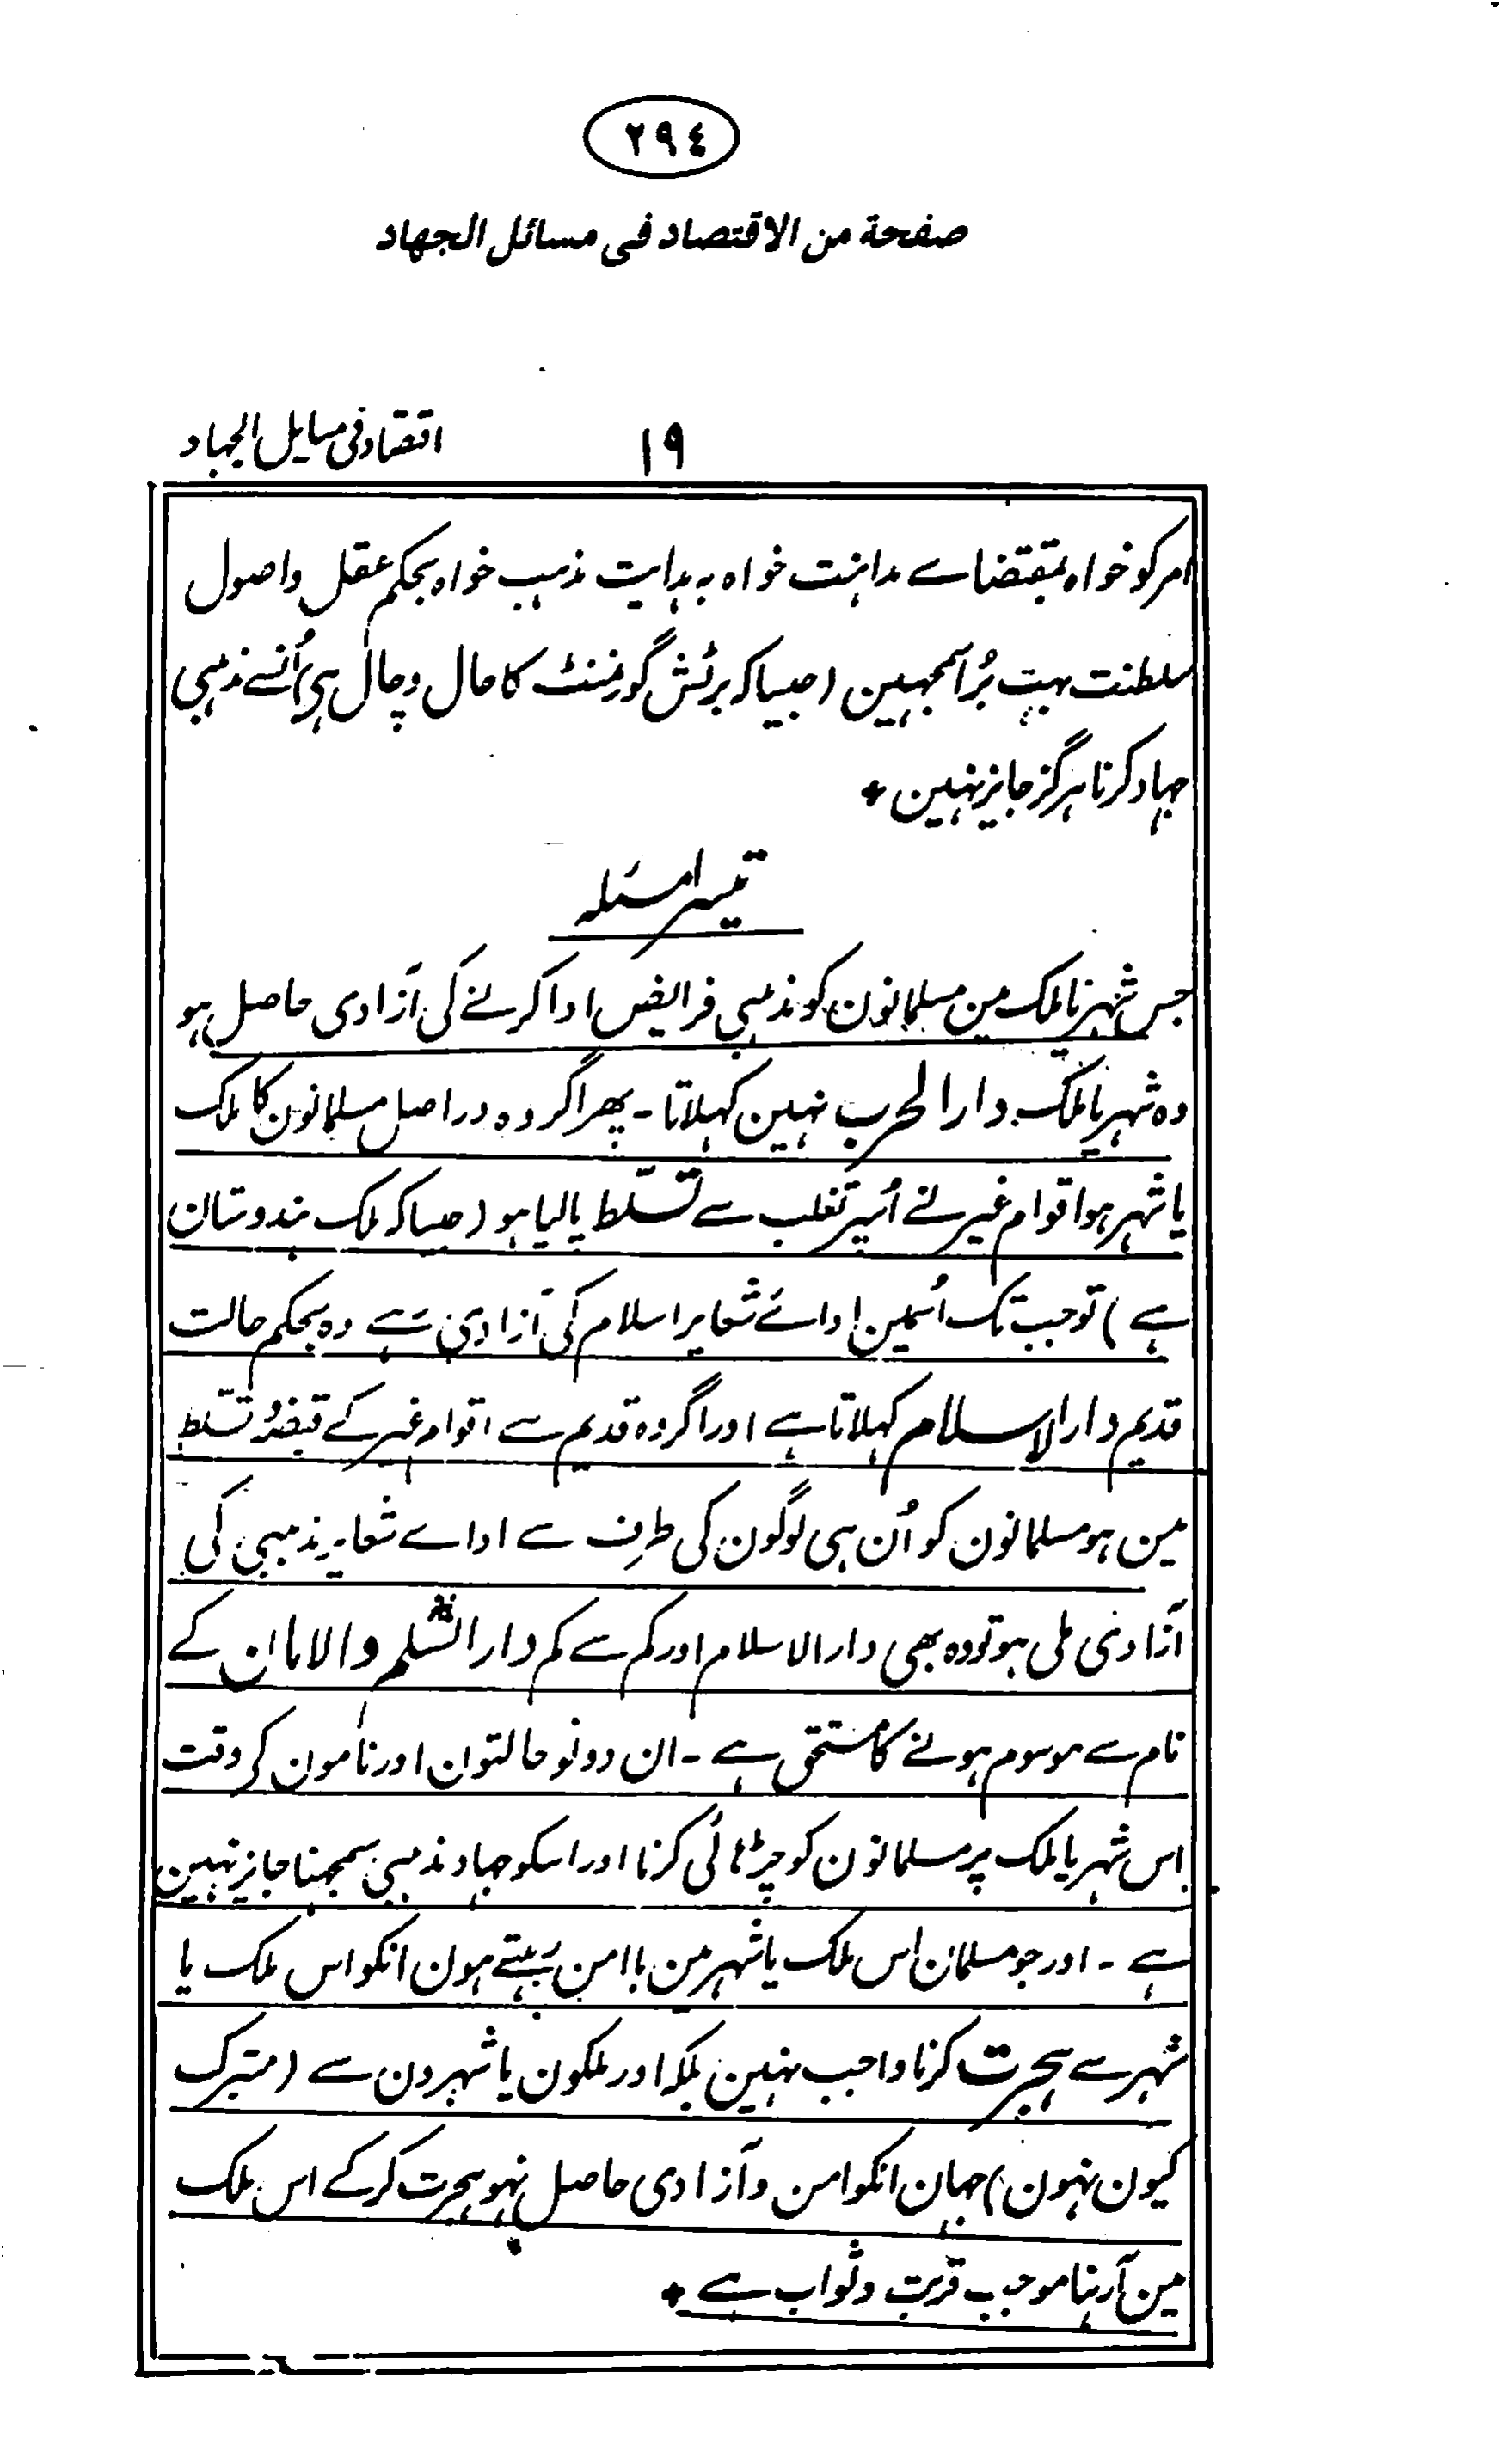 ٢٩٤
صفحة من الاقتصاد فى مسائل الجهاد
۱۹
اقتصاد فی مسایل الجہاد
امر کو خواہ بمقتضاے مداہنت خواہ بہ ہدایت مذہب خواہ بحکم عقل و اصول
سلطنت بہت بُرا سمجہین (جیسا کہ برٹش گورنمنٹ کا حال و چال ہی) اُنسے مذہبی
جہاد کرنا ہرگز جایز نہین *
تیسرا مسئلہ
جس شہر یا ملک مین مسلمانون کو مذہبی فرایض ادا کرنے کی آزادی حاصل ہو
وہ شہر یا ملک دار الحرب نہین کہلاتا - پھر اگر وہ دراصل مسلمانون کا ملک
یا شہر ہو اقوام غیر نے اُسپر تغلب سے تسلّط پا لیا ہو (جیسا کہ ملک ہندوستان
ہے) تو جب تک اُسمین اداے شعایر اسلام کی آزادی ہے وہ بحکم حالت
قدیم دار الاسلام کہلاتا ہے اور اگر وہ قدیم سے اقوام غیر کے قبضہ و تسلط
مین ہو مسلمانون کو اُن ہی لوگون کی طرف سے اداے شعایر مذہبی کی
آزادی ملی ہو تو وہ بھی دار الاسلام اور کم سے کم دار السّلم والامان کے
نام سے موسوم ہونے کا مستحق ہے - ان دونو حالتون اور نامون کی وقت
اس شہر یا ملک پر مسلمانون کو چڑہائی کرنا اور اسکو جہاد مذہبی سمجہنا جایز نہین
ہے - اور جو مسلمان اس ملک یا شہر مین با امن رہتے ہون انکو اس ملک یا
شہر سے ہجرت کرنا واجب نہین بلکہ اور ملکون یا شہرون سے (متبرک
کیون نہون) جہان انکو امن و آزادی حاصل نہو ہجرت کر کے اس ملک
مین آرہنا موجب قربت و ثواب ہے *